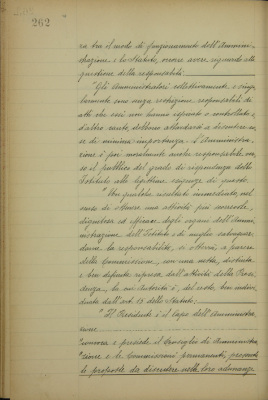 262
ra tra il modo di funzionamento dell'Ammini-
strazione e lo Statuto, occorre avere riguardo alla
questione della responsabilità:
"Gli Amministratori collettivamente, e singo-
larmente sono senza eccezione responsabili di
atti che essi non hanno esperito o controllato; e
d'altro canto, debbono attendere a decentrare
se di minima importanza. L'Amministra-
zione è poi moralmente anche responsabile, ver-
so il pubblico del grado di rispondenza dello
Istituto alle legittime esigenze di questo.
"Un qualche risultato immediato, nel
senso di ottenere una attività più notevole,
diuturna ed efficace degli organi dell'Ammi-
nistrazione dell'Istituto e di meglio salvaguar-
darne la responsabilità, si otterrà, a parere
della Commissione, con una netta, distinta
e ben definita ripresa dell'attività della Presi-
denza, la cui Autorità è, del resto, ben indivi-
duata dall'art. 15 dello Statuto:
"Il Presidente è il Capo dell'Amministra-
zione
"convoca e presiede il Consiglio di Amministra-
"zione e le Commissioni permanenti, propone
le proposte da discutere nelle loro adunanze